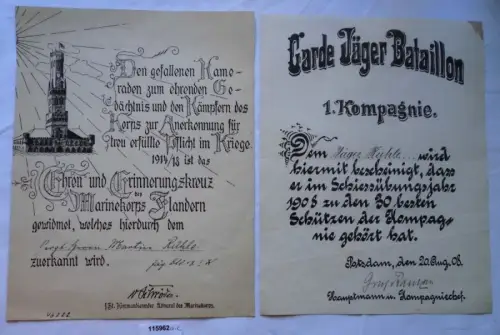 Den gefallenen Kame-
raden zum ehrenden Ge-
dächtnis und den Kämpfern des
Korps zur Anerkennung für
treu erfüllte Pflicht im Kriege
1914/18 ist das
Ehren und Erinnerungskreuz
des
Marinekorps Flandern
gewidmet, welches hierdurch dem
zuerkannt wird.
z. Zt. Kommandierender Admiral des Marinekorps.
Garde Jäger Bataillon
1. Kompagnie.
Dem Jäger ... wird
hiermit bescheinigt, dass
er im Schiessübungsjahr
1908 zu den 30 besten
Schützen der Kompag-
nie gehört hat.
Potsdam, den 20. Aug. 08.
Hauptmann u. Kompagniechef.
115962